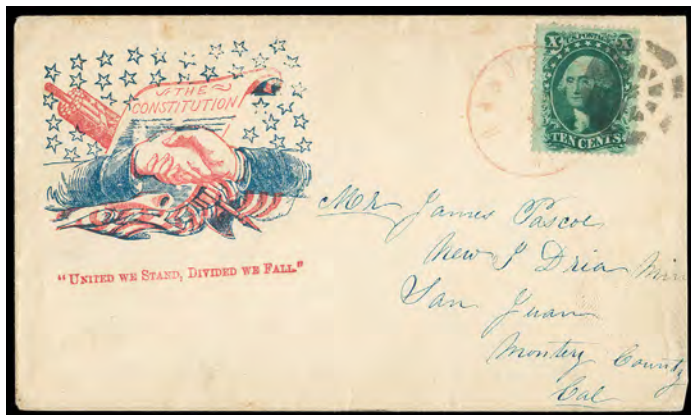 THE
CONSTITUTION
"UNITED WE STAND, DIVIDED WE FALL."
U.S. POSTAGE
X X
TEN CENTS.
Mr James Pascoe
New I Dria Min
San Juan
Montery County
Cal